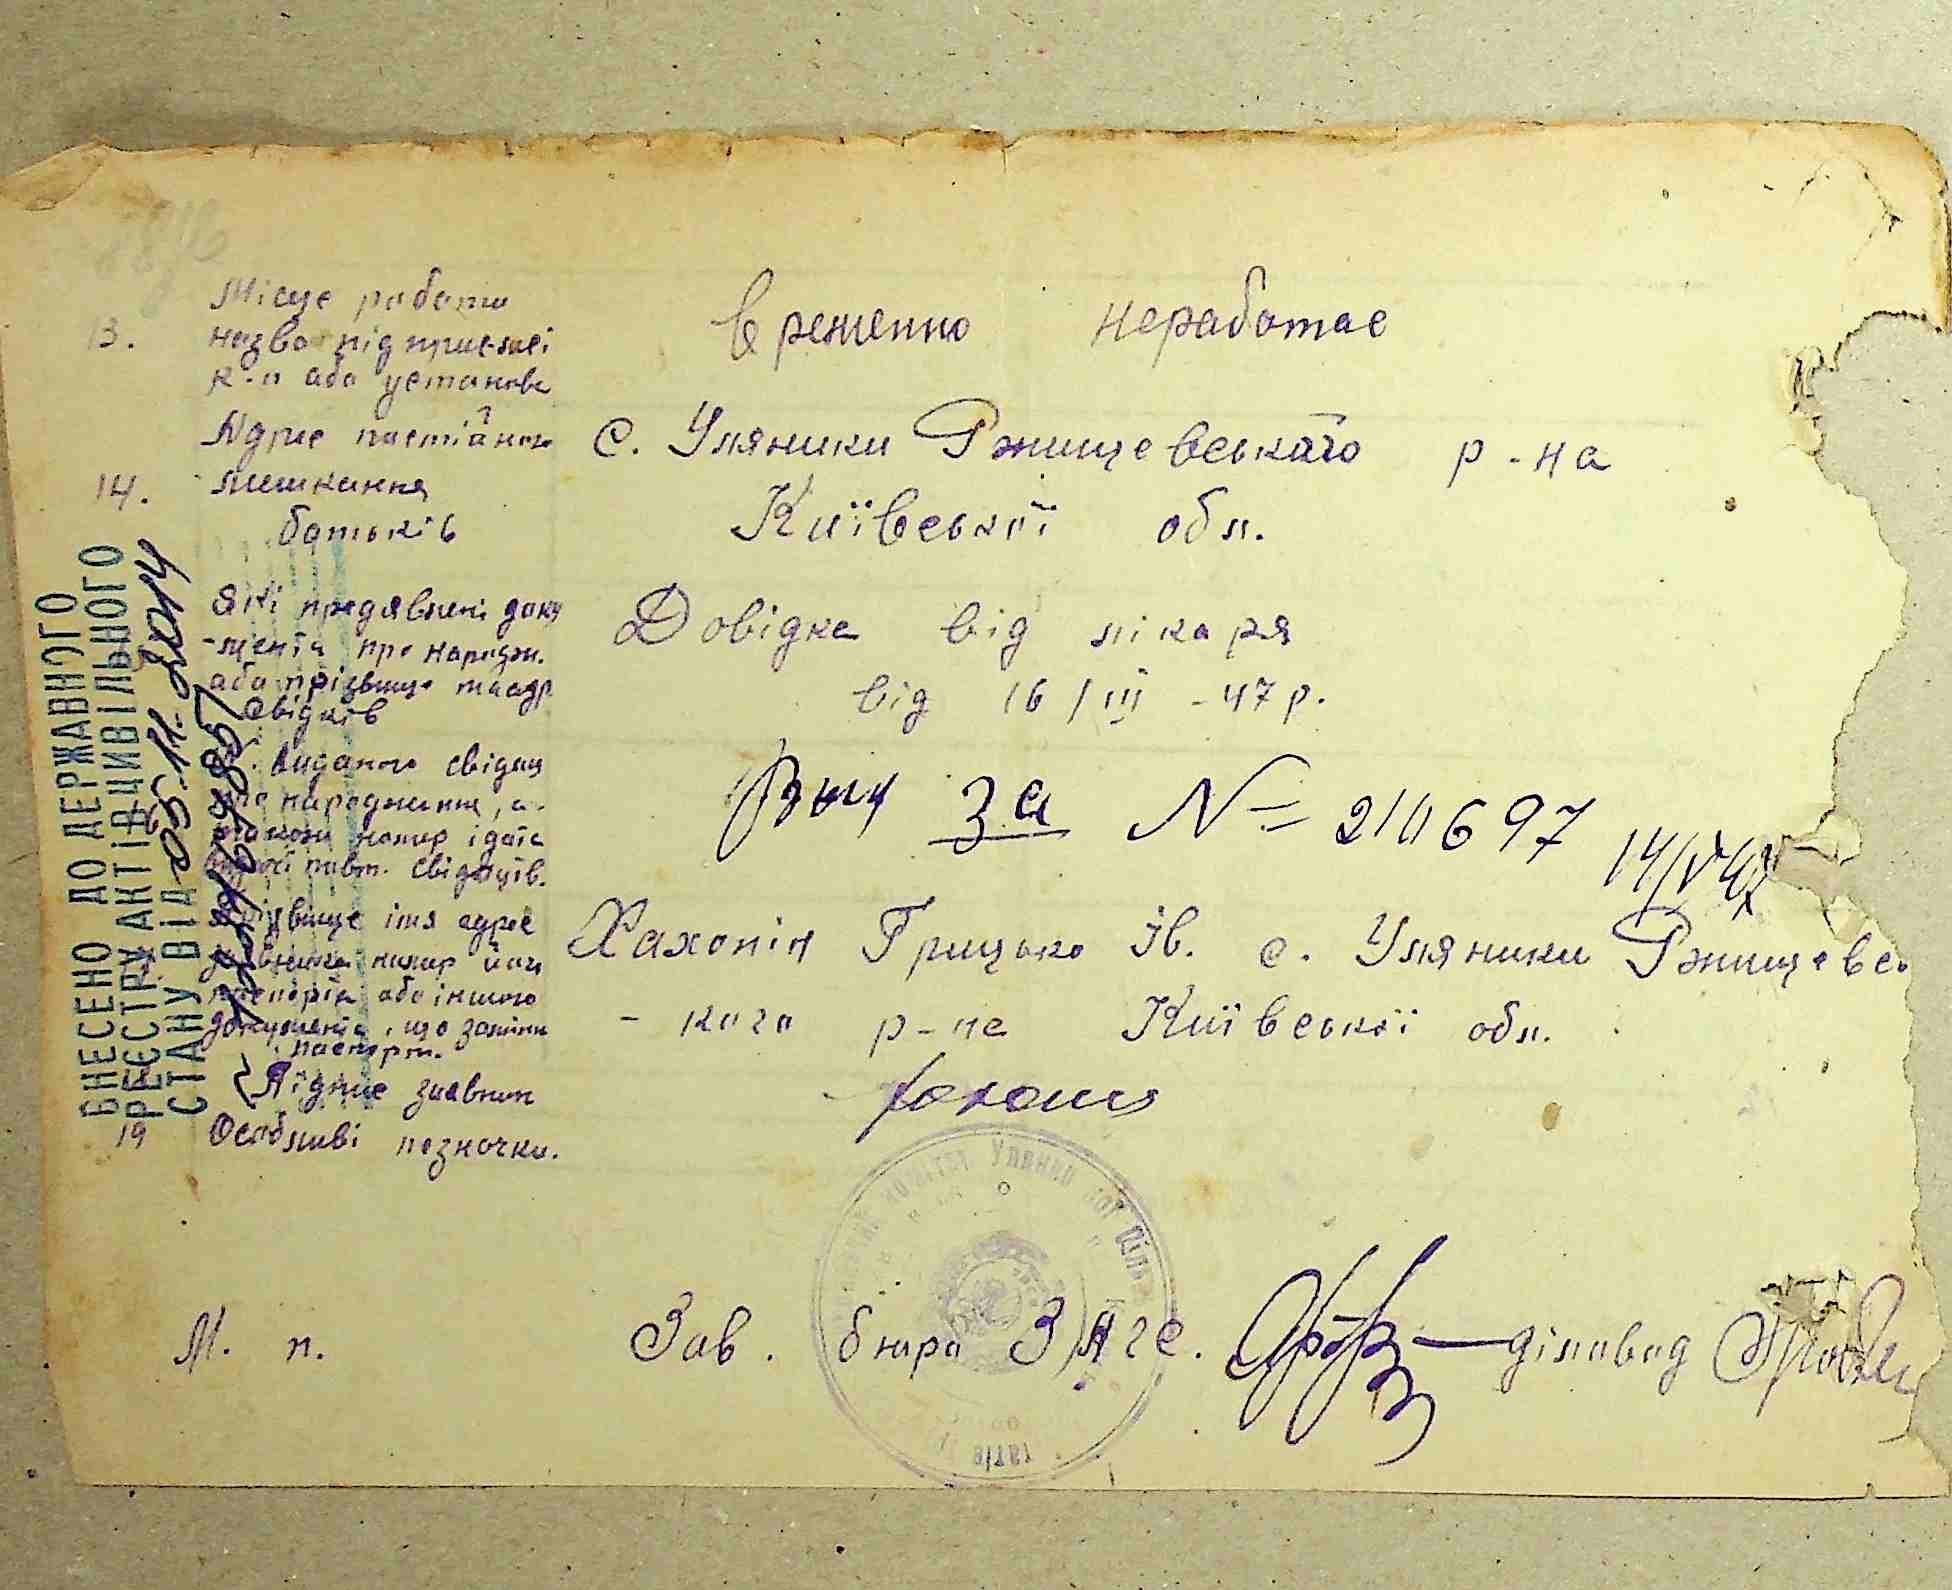 Місце роботи
13. назва підприємсі
к-и або установи
временно неработає
Адрес постійного
14. мешкання
батьків
с. Уляники Ржищевського р-на
Київської обл.
Які предявлені доку
-мента про народж.
або прізвище та адр
свідків
Довідка від лікаря
від 16/III-47 р.
виданого свідоц
про народження, а
також номер і дата
видачі повт. свідоців.
за № 210697 14/V 47
Прізвище імя адрес
заявника номер його
паспорта або іншого
документа, що заміни
паспорт.
Хахонін Грицько Ів. с. Уляники Ржищевсь
-кого р-на Київської обл.
Підпис заявник
19 Особливі позночки.
М. п. Зав. бюро ЗАГС. діловод
ВНЕСЕНО ДО ДЕРЖАВНОГО
РЕЄСТРУ АКТІВ ЦИВІЛЬНОГО
СТАНУ ВІД 05.11.2014